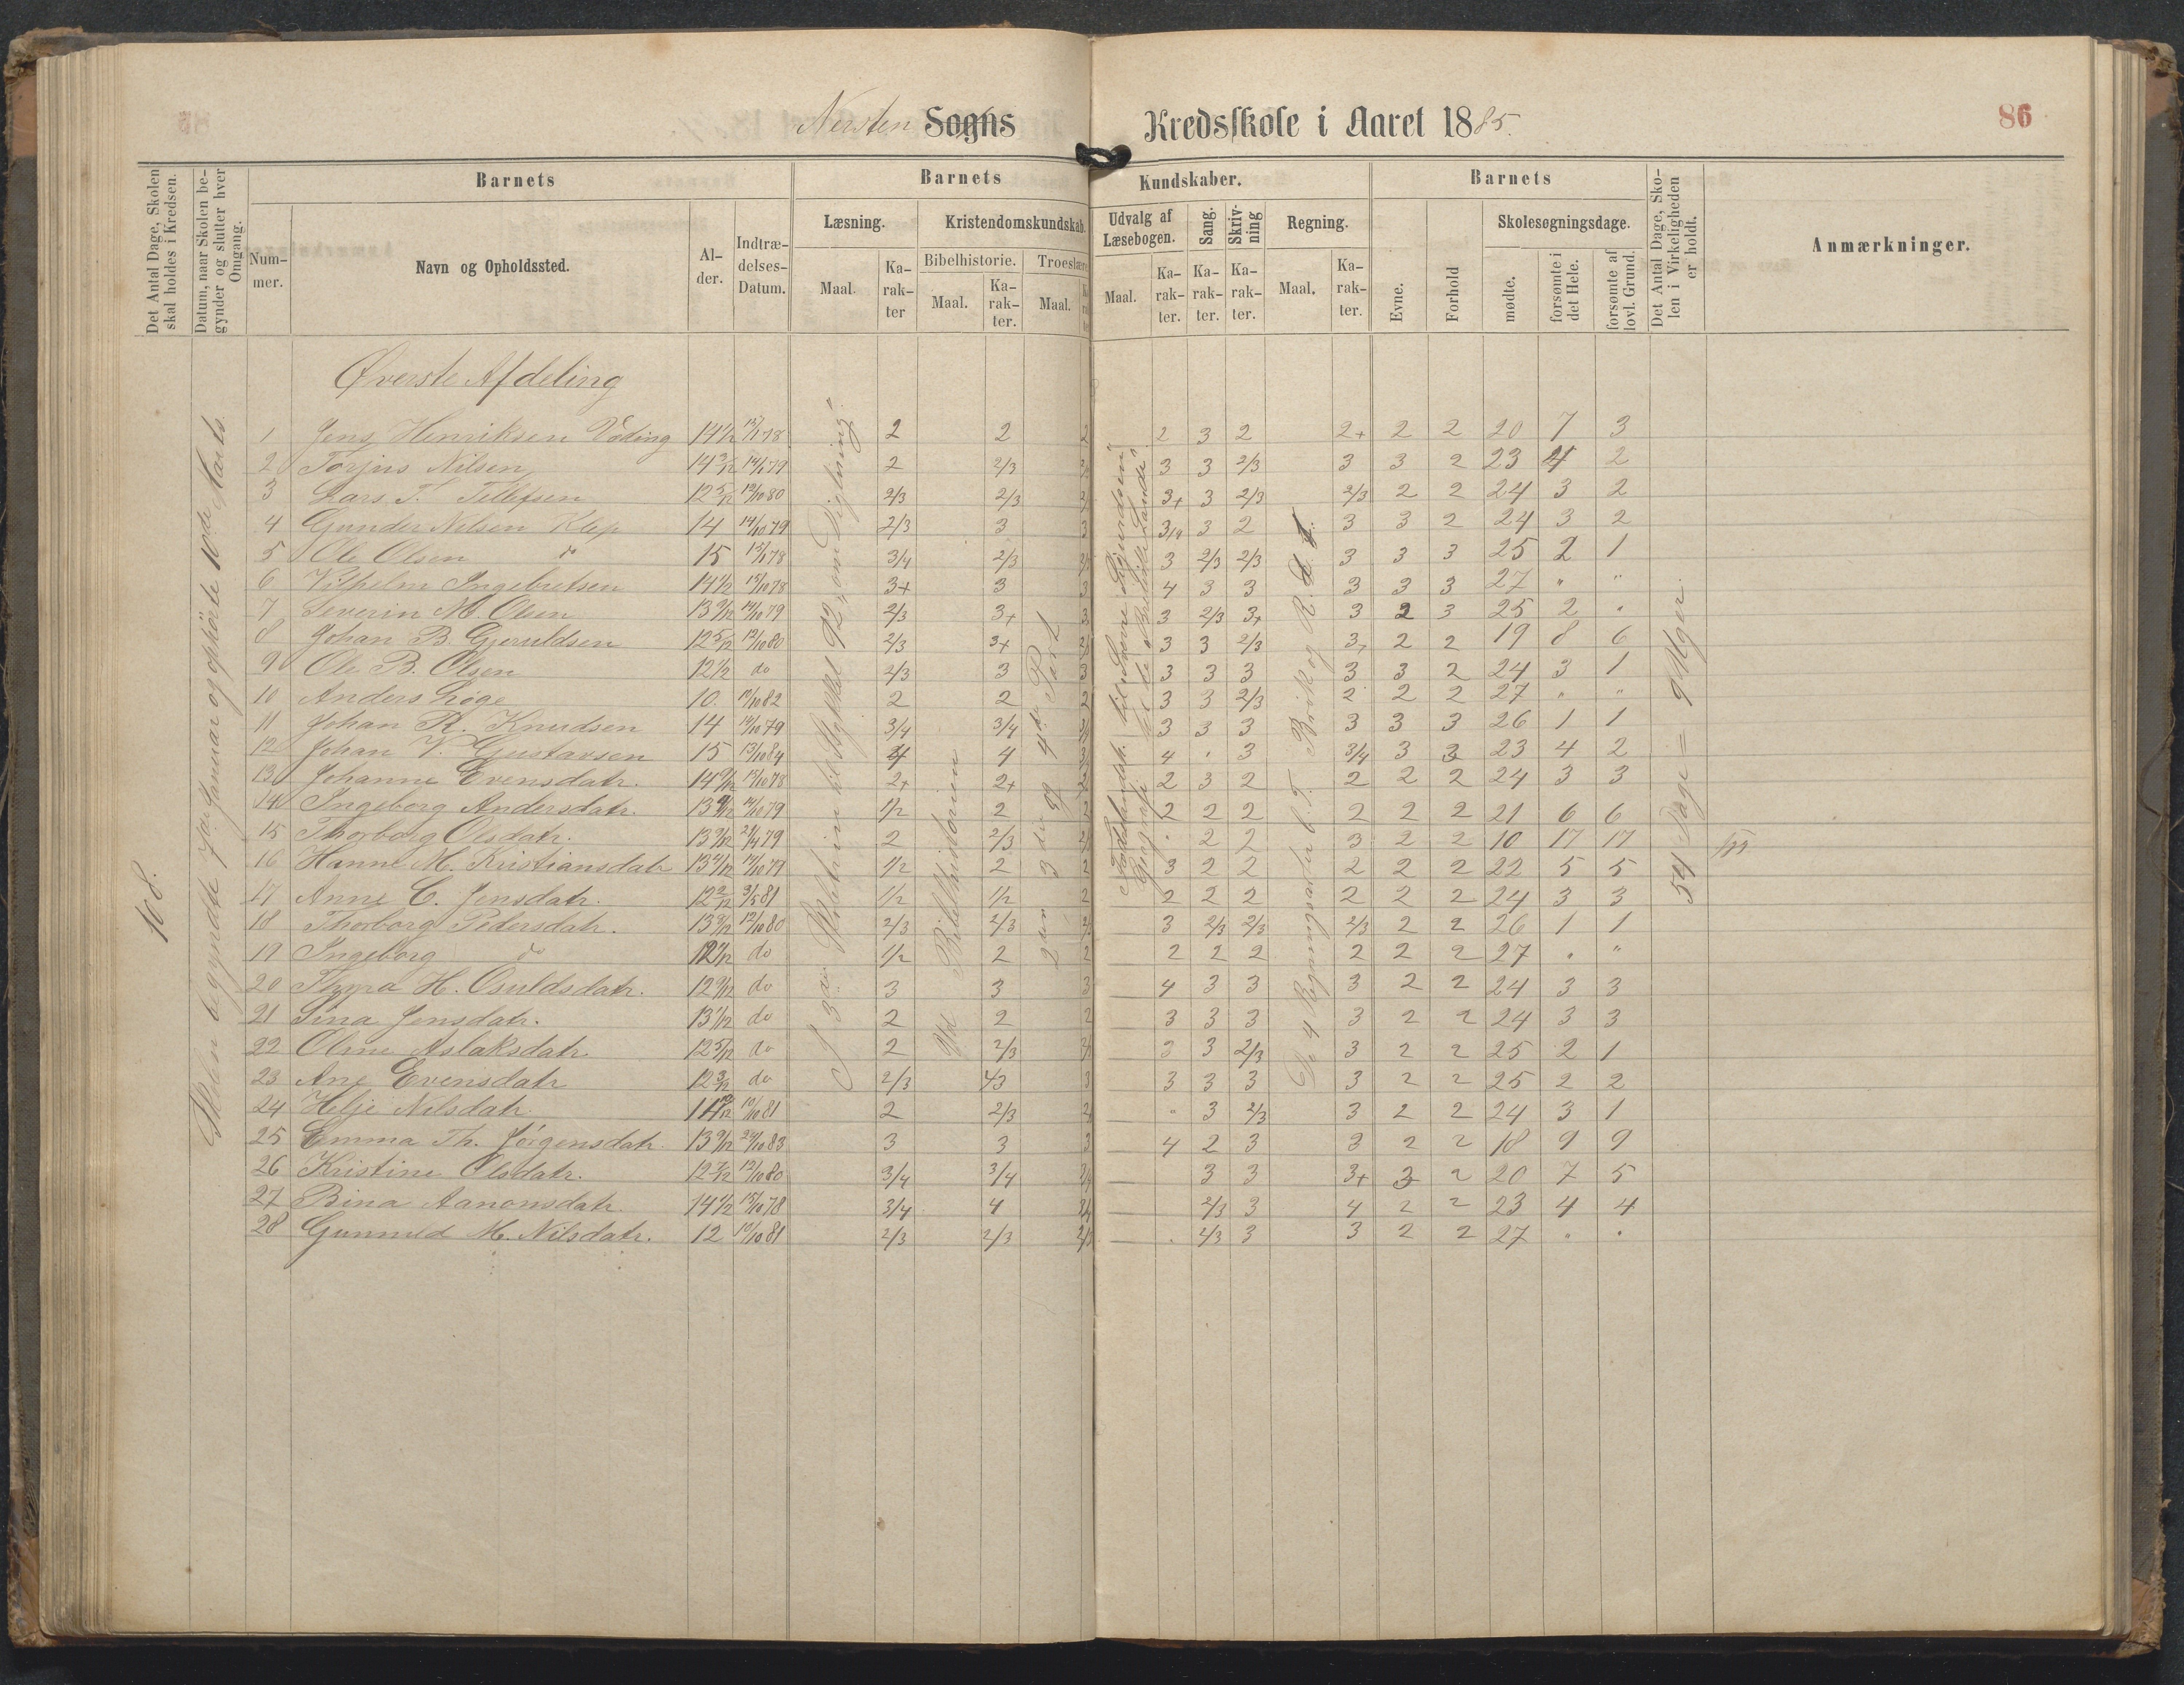 Nersten Sogns Kredsskole i Aaret 1885.
86
Det Antal Dage, Skolen skal holdes i Kredsen.
Datum, naar Skolen begynder og slutter hver Omgang.
Barnets
Barnets Kundskaber.
Barnets
Det Antal Dage, Skolen i Virkeligheden er holdt.
Anmærkninger.
Nummer.
Navn og Opholdssted.
Alder.
Indtrædelses-Datum.
Læsning.
Kristendomskundskab.
Udvalg af Læsebogen.
Sang.
Skrivning
Regning.
Evne.
Forhold
Skolesøgningsdage.
Bibelhistorie.
Troeslære
Maal.
Karakter
Maal.
Karakter.
Maal.
Maal.
Karakter.
Karakter.
Karakter.
Maal.
Karakter.
mødte.
forsømte i det Hele.
forsømte af lovl. Grund.
108.
Skolen begyndte 7de Januar og ophörte 10de Marts
Bibelhistorien
54 Dage = 9 Uger
Øverste Afdeling
1 Jens Henriksen Voding 14 1/2 2 2 2 3 2 2+ 2 2 20 7 3
2 Torjus Nilsen 14 3/12 2 2/3 3 3 2/3 3 3 2 23 4 2
3 Lars T. Tellefsen 12 5/12 12/10 80 2/3 2/3 3+ 3 2/3 2/3 2 2 24 3 2
4 Gunder Nilsen Klep 14 14/10 79 2/3 3 3 2 3 3 2 24 3 2
5 Ole Olsen do 15 3/4 2/3 3 2/3 2/3 3 3 3 25 2 1
6 Vilhelm Ingebretsen 14 1/2 15/10 78 3+ 3 4 3 3 3 3 3 27 " "
7 Severin M. Olsen 13 9/12 14/10 79 2/3 3+ 3 2/3 3+ 3 2 3 25 2 "
8 Johan B. Gjeruldsen 12 5/12 12/10 80 2/3 3+ 3 3 2/3 3+ 2 2 19 8 6
9 Ole B. Olsen 12 1/2 do 2/3 3 3 3 3 3 3 2 24 3 1
10 Anders Løge 10. 10/10 82 2 2 3 3 2/3 2 2 2 27 " "
11 Johan R. Knudsen 14 14/10 79 3/4 3/4 3 3 3 3 3 3 26 1 1
12 Johan V. Gustavsen 15 13/10 84 4 4 4 " 3 3/4 3 3 23 4 2
13 Johanne Evensdatr. 14 15/10 78 2+ 2+ 2 3 2 2 2 2 24 3 3
14 Ingeborg Andersdatr. 13 14/10 79 1/2 2 2 2 2 2 2 2 21 6 6
15 Thorborg Olsdatr. 13 2 2/3 " 2 2 3 2 2 10 17 17
16 Hanne M. Kristiansdatr 13 14/10 79 1/2 2 3 2 2 2 2 2 22 5 5
17 Anne C. Jensdatr. 12 2/12 3/5 81 1/2 1/2 2 2 2 2 2 2 24 3 3
18 Thorborg Pedersdatr. 13 12/10 80 2/3 2/3 3 2/3 2/3 2/3 2 2 26 1 1
19 Ingeborg do 12 do 1/2 2 2 2 2 2 2 2 27 " "
20 Thyra H. Osuldsdatr. 12 do 3 3 4 3 3 3 2 2 24 3 3
21 Sina Jensdatr. 13 1/12 do 2 2 3 3 3 3 2 2 24 3 3
22 Oline Aslaksdatr. 12 5/12 do 2 2/3 3 3 2/3 3 2 2 25 2 1
23 Ane Evensdatr 12 3/12 do 2/3 3 3 3 3 2 2 25 2 2
24 Helje Nilsdatr. 11 10/12 10/10 81 2 2/3 " 3 2/3 3 2 2 24 3 1
25 Emma Th. Jörgensdatr. 13 9/12 24/10 83 3 3 4 2 3 3 2 2 18 9 9
26 Kristine Olsdatr. 12 12/10 80 3/4 3/4 3 3 3+ 3 2 20 7 5
27 Bina Aanonsdatr. 14 1/2 15/10 78 3/4 4 2/3 3 4 2 2 23 4 4
28 Gunnild M. Nilsdatr. 12 10/10 81 2/3 2/3 " 2/3 3 3 2 2 27 " "